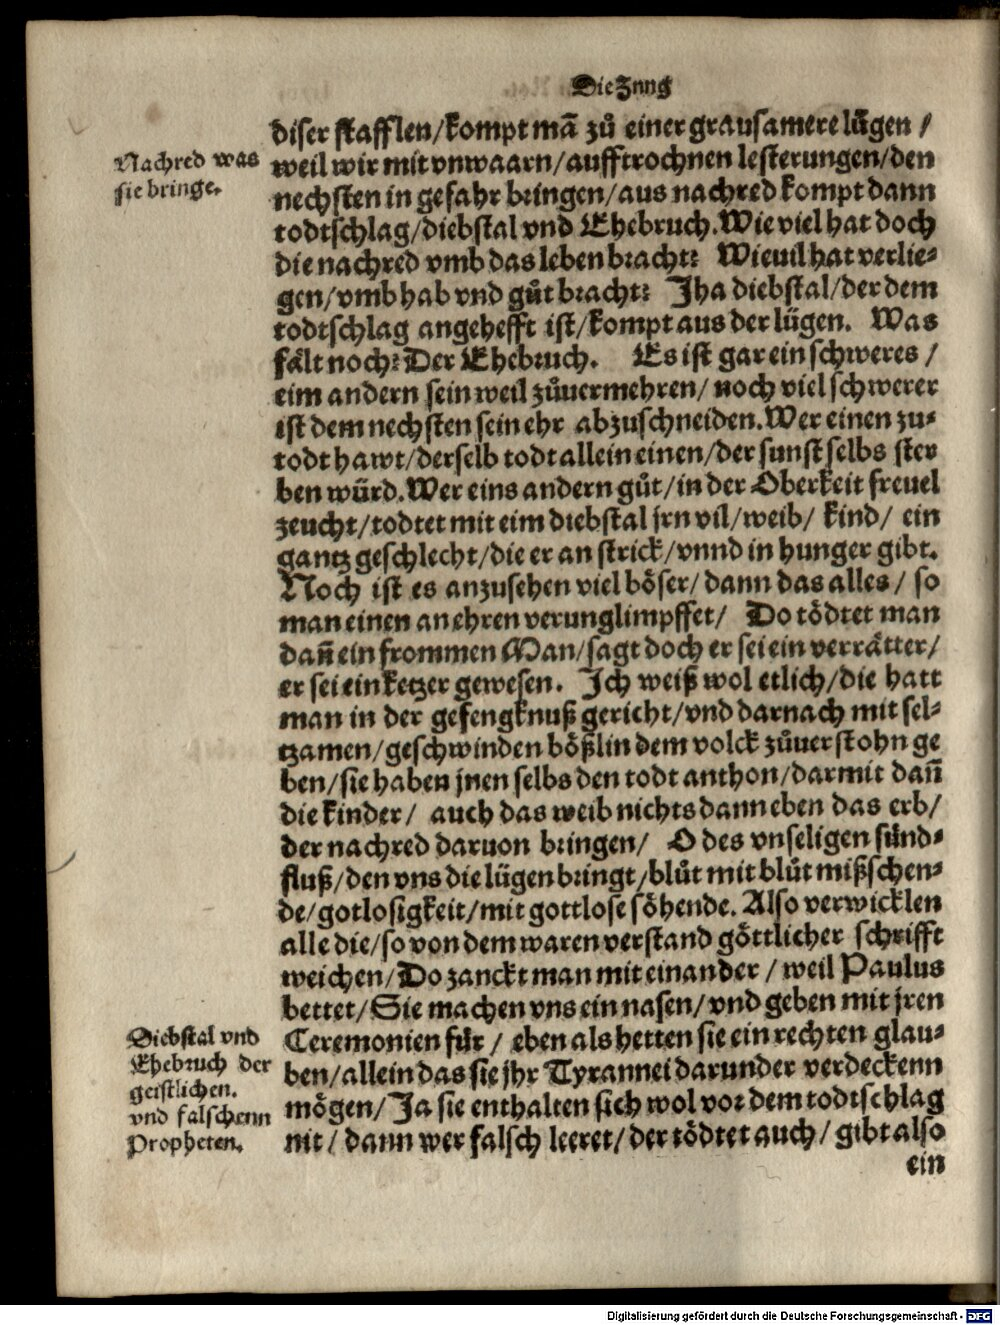 Die Znng
diser stafflen/kompt mã zů einer grausamere lůgen /
Nachred was
sie bringe.
weil wir mit vnwaarn/aufftrochnen lesterungen/den
nechsten in gefahr bringen/aus nachred kompt dann
todtschlag/diebstal vnd Ehebruch.Wie viel hat doch
die nachred vmb das leben bracht? Wieuil hat verlie-
gen/vmb hab vnd gůt bracht? Jha diebstal/der dem
todtschlag angehefft ist/kompt aus der lügen. Was
fålt noch?Der Ehebruch. Es ist gar ein schweres /
eim andern sein weil zůuermehren/ noch viel schwerer
ist dem nechsten sein ehr abzuschneiden.Wer einen zu-
todt hawt/derselb todt allein einen/der sunst selbs ster
ben würd.Wer eins andern gůt/in der Oberkeit freuel
zeucht/todtet mit eim diebstal jrn vil/weib/ kind/ ein
gantz geschlecht/die er an strick/vnnd in hunger gibt.
Noch ist es anzusehen viel böser/dann das alles/ so
man einen an ehren verunglimpffet/ Do tödtet man
dañ ein frommen Man/sagt doch er sei ein verråtter/
er sei ein ketzer gewesen. Jch weiß wol etlich/die hatt
man in der gefengknuß gericht/vnd darnach mit sel-
tzamen/geschwinden bößlin dem volck zůuerstohn ge
ben/sie haben jnen selbs den todt anthon/darmit dañ
die kinder/ auch das weib nichts dann eben das erb/
der nachred daruon bringen/ O des vnseligen sünd-
fluß/den vns die lügen bringt/blůt mit blůt mißschen-
de/gotlosigkeit/mit gottlose söhende. Also verwicklen
alle die/so von dem waren verstand göttlicher schrifft
weichen/Do zanckt man mit einander / weil Paulus
bettet/Sie machen vns ein nasen/vnd geben mit jren
Diebstal vnd
Ehebruch der
geistlichen.
vnd falschenn
Propheten.
Ceremonien für / eben als hetten sie ein rechten glau-
ben/allein das sie jhr Tyrannei darunder verdeckenn
mögen/Ja sie enthalten sich wol vor dem todtschlag
nit/ dann wer falsch leeret/der tödtet auch/gibt also
ein
Digitalisierung gefördert durch die Deutsche Forschungsgemeinschaft - DFG